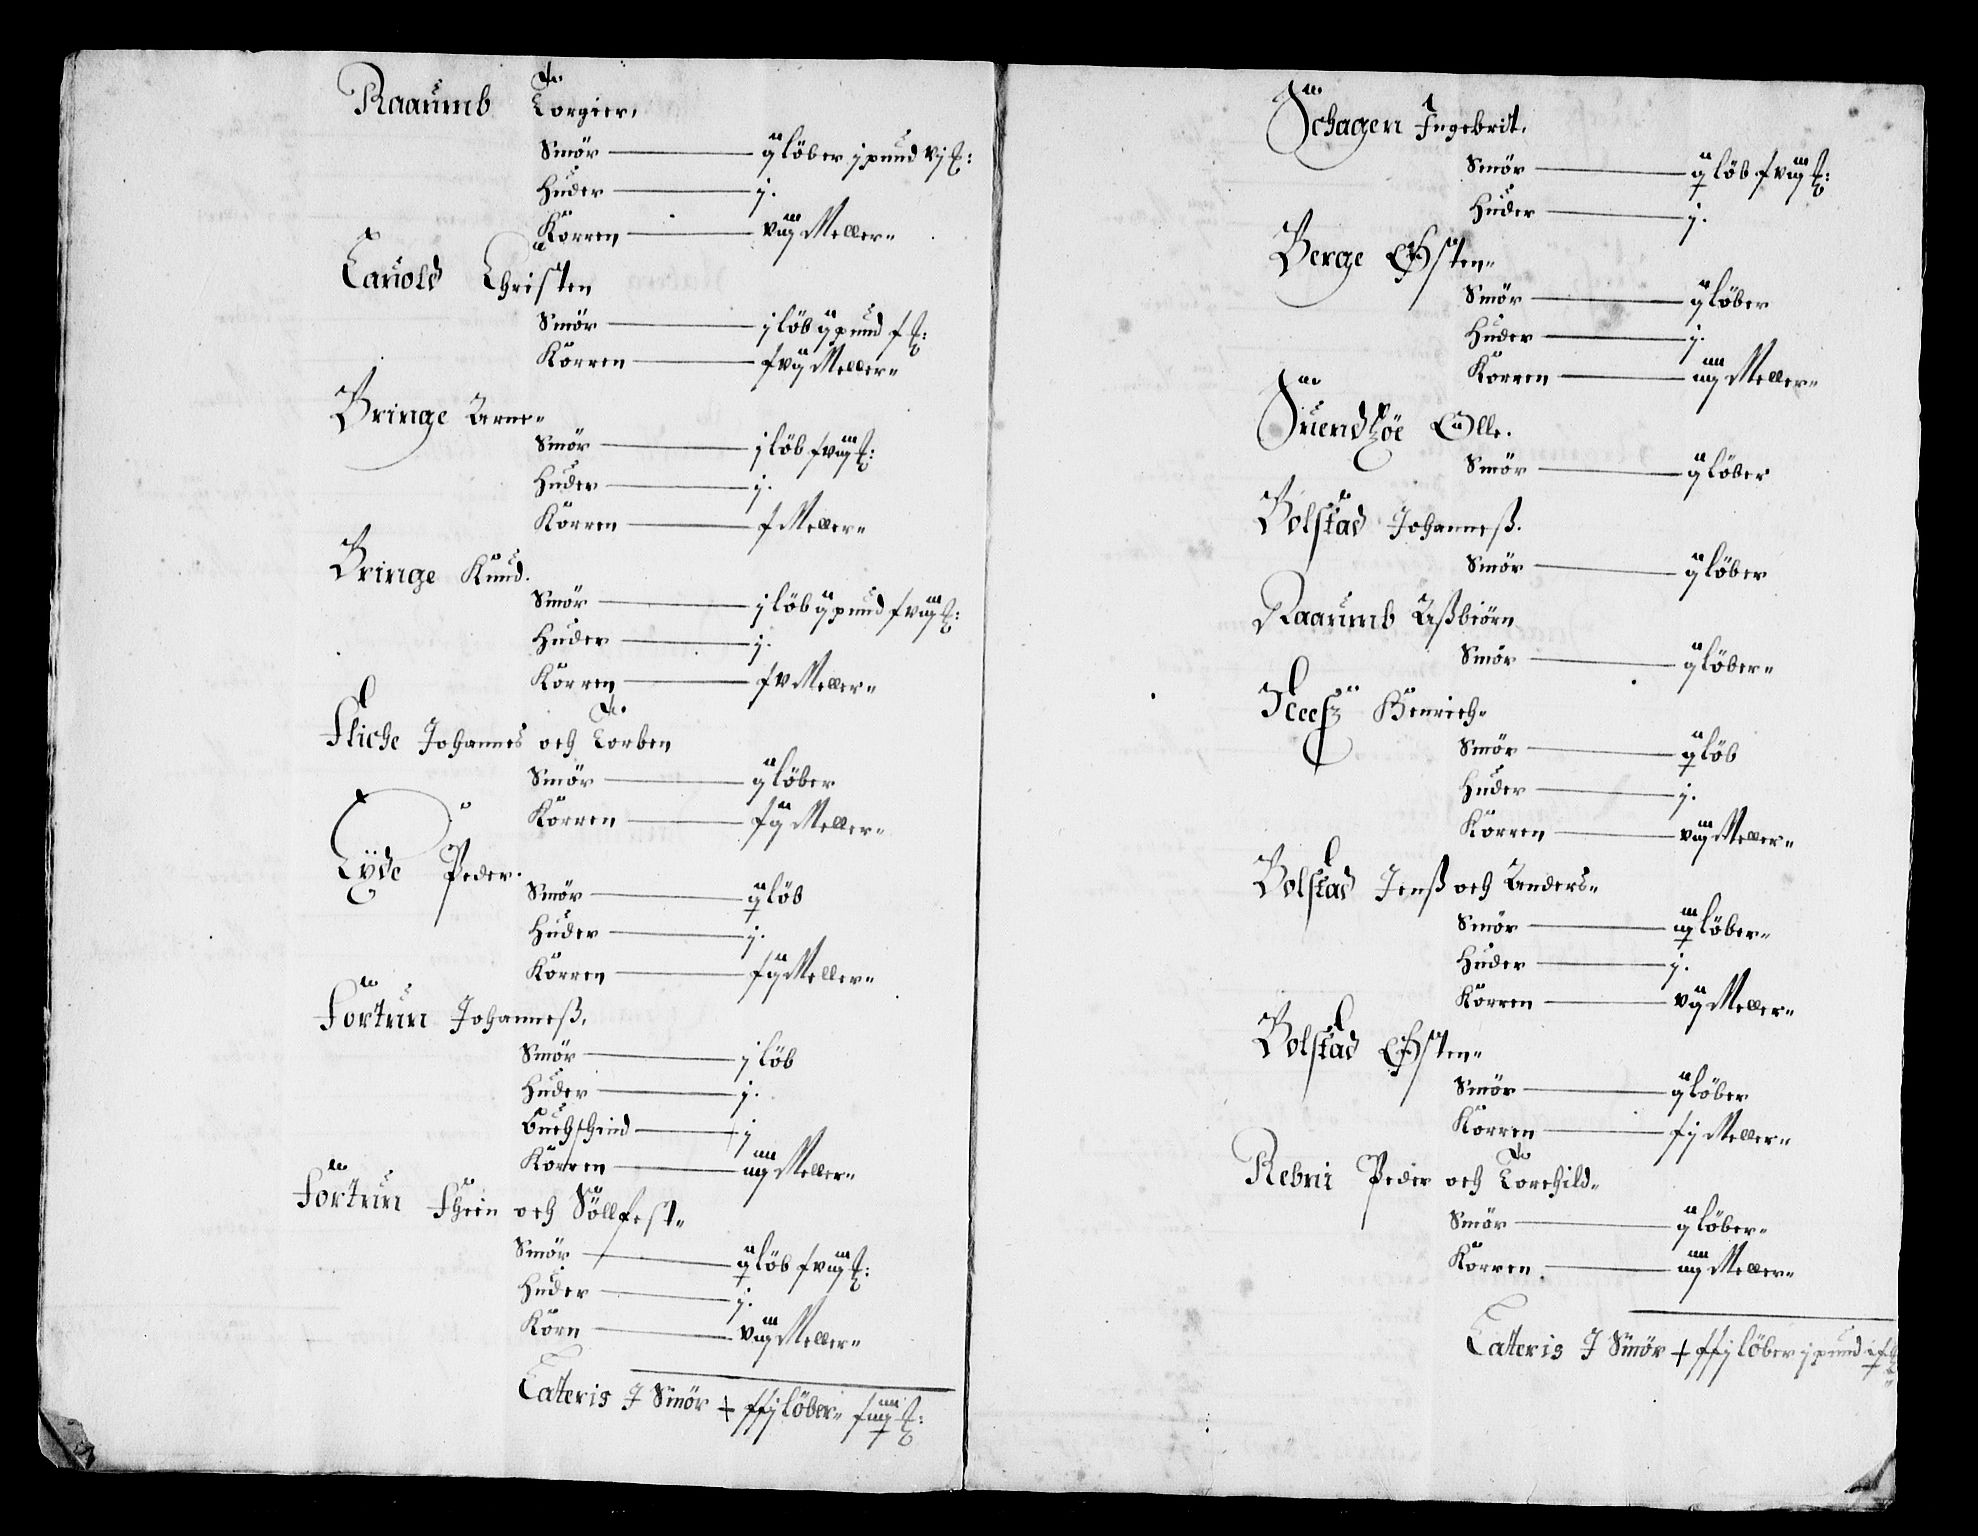 Raaumb Torgier.
Smör — ij löber j pund vj ℔:
Huder — j.
Körren — viij Meller
Earuold Christen
Smör — j löb ij pund x ℔:
Körren — xvij Meller
Bringe Arne
Smör — j löb xviij ℔:
Huder — j.
Körren — x Meller
Bringe Knud.
Smör — j löb ij pund xviij ℔:
Huder — j.
Körren — xv Meller
Fliche Johannes och Torben
Smör — ij löber
Körren — xij Meller
Eyde Peder.
Smör — ij löb
Huder — j.
Körren — xij Meller
Fortun Johanneß.
Smör — j löb
Huder — j.
Buchschind — j
Körren — iiij Meller
Fortun Sthein och Söllfest
Smör — ij löb xviij ℔:
Huder — j.
Körn — viij Meller
Latteris J Smör + xxj löber xiiij ℔:
Schagen Ingebrit.
Smör — ij löb xviij ℔:
Huder — j.
Berge Östen
Smör — ij löber
Huder — j.
Körren — iiij Meller
Olle.
Smör — ij löber
Bolstad Johanneß.
Smör — ij löber
Raaumb Aßbiörn
Smör — ij löber
Henrich
Smör — ij löb
Huder — j.
Körren — viij Meller
Bolstad Jenß och Anders
Smör — iij löber
Huder — j.
Körren — vij Meller
Bolstad Östen
Smör — ij löber
Körren — xj Meller
Rebni Peder och Torchild
Smör — ij löber
Körren — iiij Meller
Latteris J Smör + xxj löber j pund